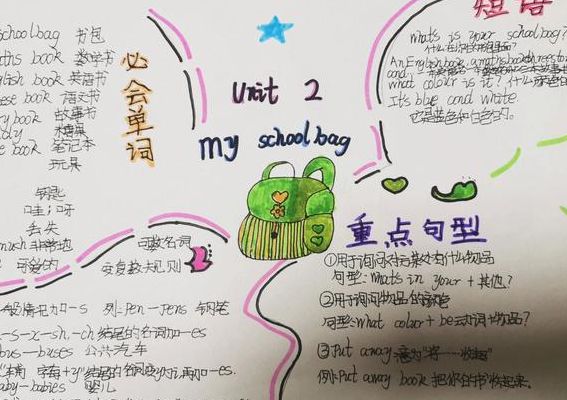 schoolbag 书包
maths book 数学书
English book 英语书
Chinese book 语文书
story book 故事书
candy 糖果
notebook 笔记本
玩具
钥匙
哇;呀
丢失
可爱的
必会单词
Unit 2
my schoolbag
短语
whats is your schoolbag?
什么在你的书包里面?
An English book, a maths book, three story
and
what colour is it? 什么颜色
It's blue and white
它是蓝色和白色的。
可数名词
变复数大规则
一般情况加-s 例:pen-pens 钢笔
-s-x-sh,-ch 结尾的名词加-es
bus-buses 公共汽车
baby-babies 婴儿
重点句型
①用于询问对方某处有什么物品
句型:Whats in your + 其他?
②用于询问物品的颜色
句型:What colour + be动词+物品?
③Put away 意为"将……收起"
例:Put away book 把你的书收起来.